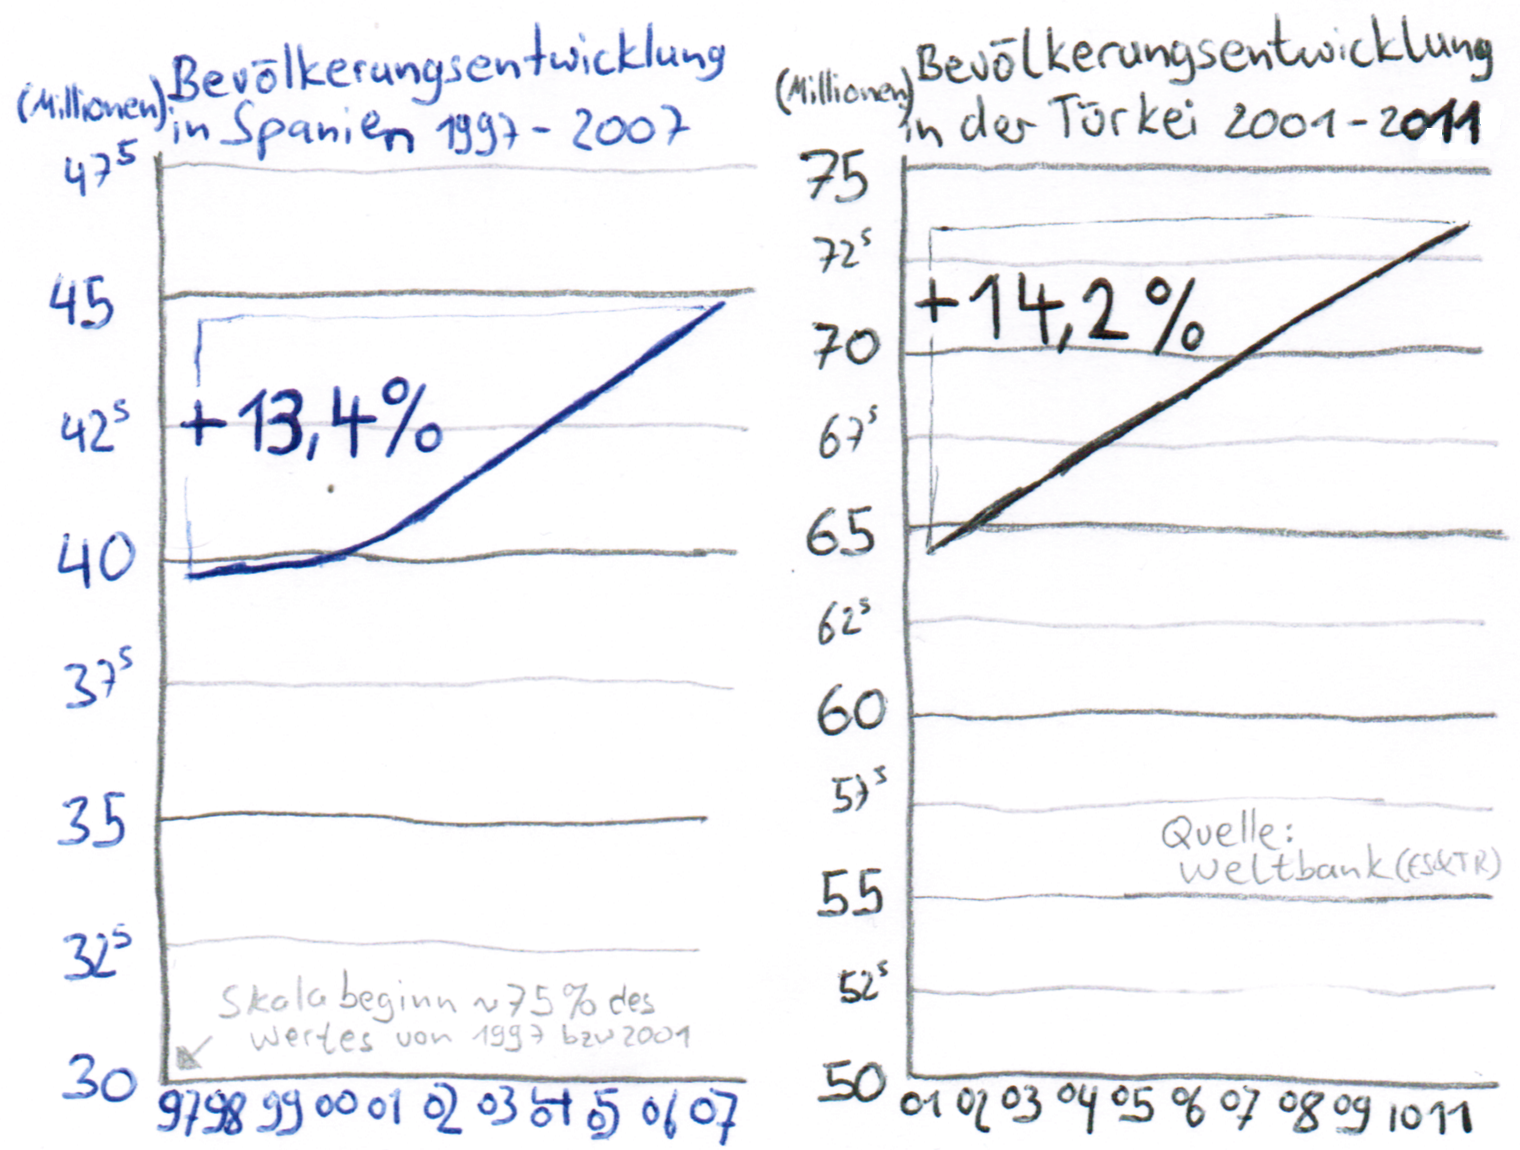 Bevölkerungsentwicklung
in Spanien 1997 - 2007
(Millionen)
47⁵
45
42⁵
40
37⁵
35
32⁵
30
+13,4%
Skalabeginn ~75% des
Wertes von 1997 bzw 2001
97 98 99 00 01 02 03 04 05 06 07
Bevölkerungsentwicklung
in der Türkei 2001-2011
(Millionen)
75
72⁵
70
67⁵
65
62⁵
60
57⁵
55
52⁵
50
+14,2%
Quelle:
Weltbank (ES&TR)
01 02 03 04 05 06 07 08 09 10 11